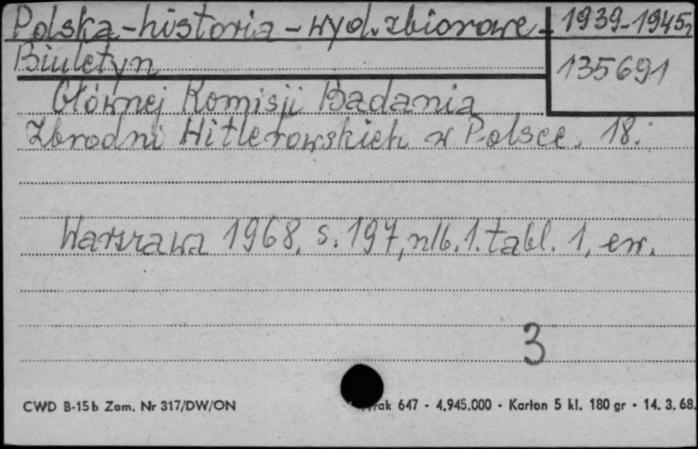 Polska - historia - wyd. zbiorowe - 1939-1945
Biuletyn 135691
Głównej Komisji Badania
Zbrodni Hitlerowskich w Polsce. 18:
Warszawa 1968, s. 197, nlb. 1. tabl. 1, err.
3
CWD B-15b Zam. Nr 317/DW/ON
647 - 4.945.000 - Karton 5 kl. 180 gr - 14. 3. 68.